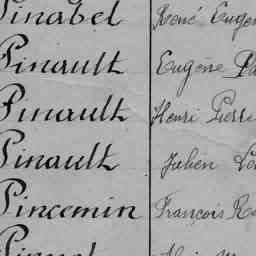 Pinabel René
Pinault Eugène
Pinault Henri Pierre
Pinault Julien
Pincemin François